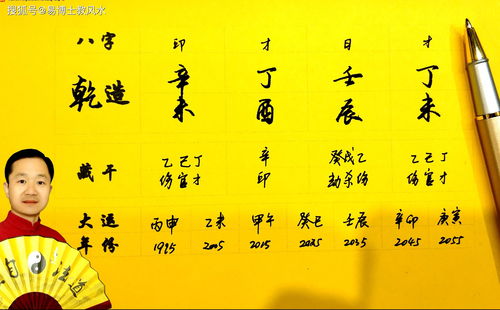 搜狐号@易博士教风水
八字 印 才 日 才
乾造 辛未 丁酉 壬辰 丁未
藏干 乙己丁 辛 癸戊乙 乙己丁
伤官才 印 劫杀伤 伤官才
大运 丙申 乙未 甲午 癸巳 壬辰 辛卯 庚寅
年份 1995 2005 2015 2025 2035 2045 2055
道法自